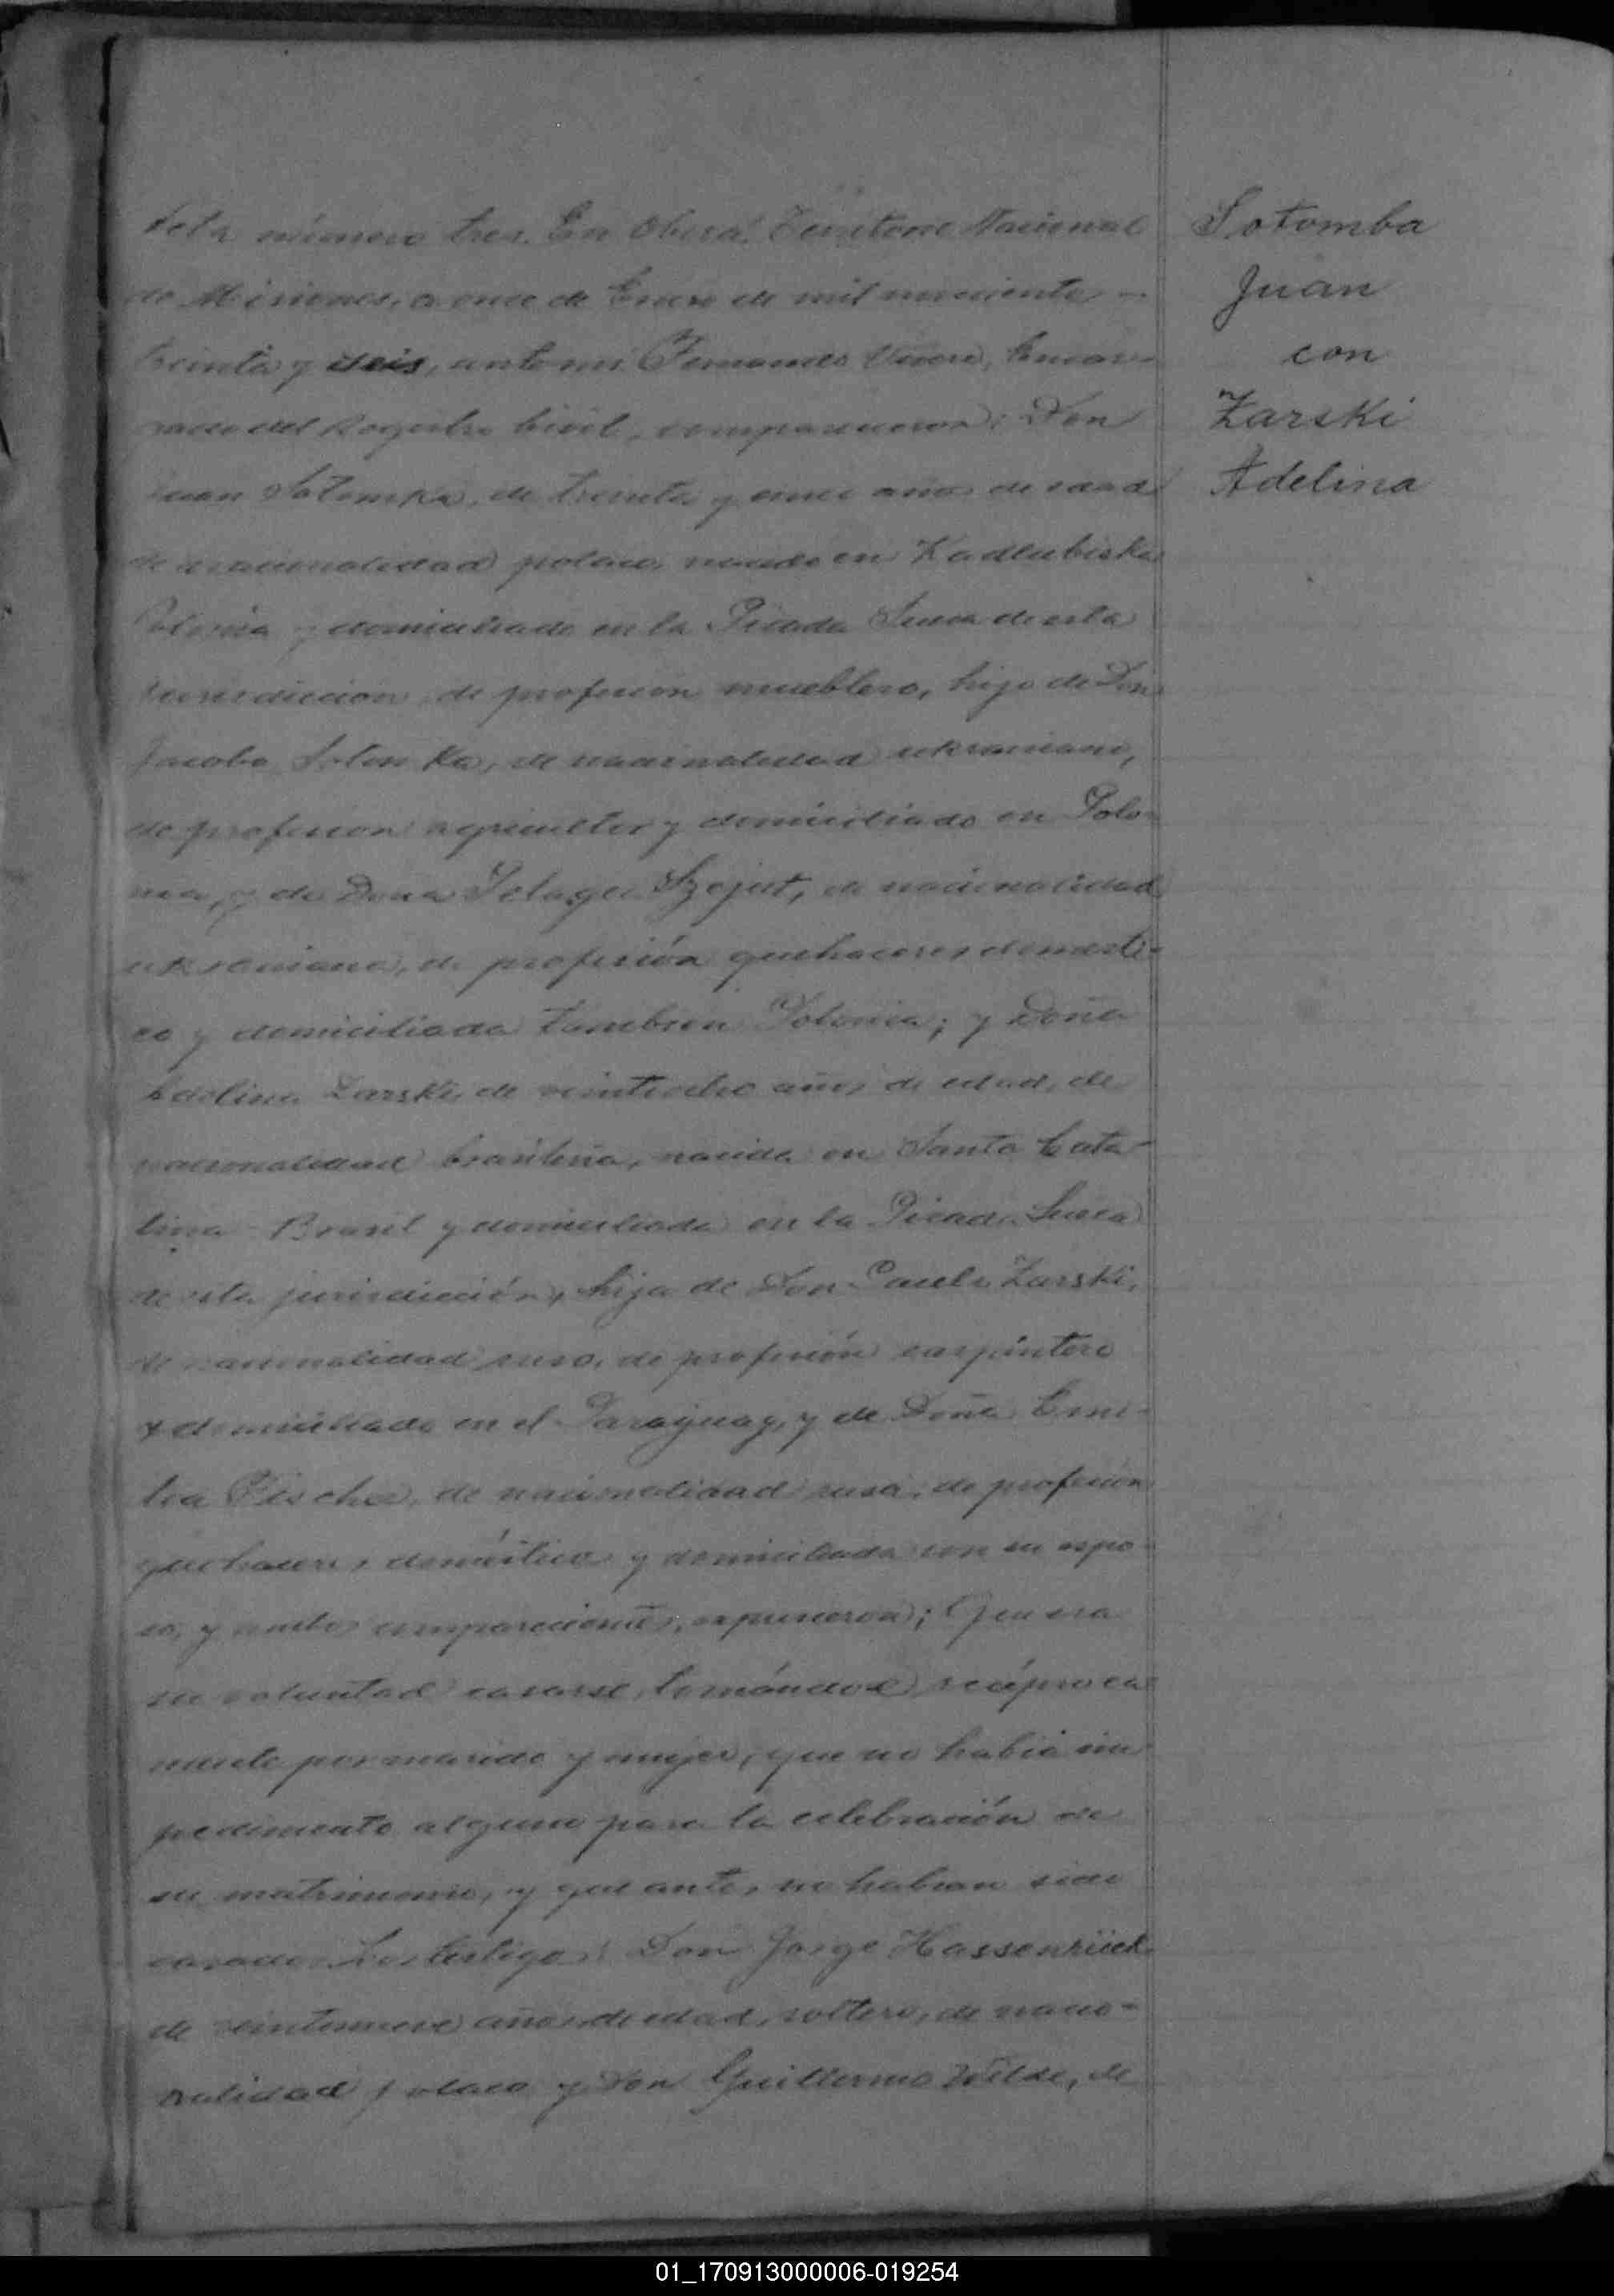 Acta número tres. En Oberá, Territorio Nacional
de Misiones, a once de Enero de mil novecientos
treinta y seis, ante mi Fernando Vivere, Encar-
gado del Registro Civil, comparecieron: Don
Juan Sotomka, de treinta y cinco años de edad
de nacionalidad polaca, nacido en Kadlubiska
Polonia y domiciliado en la Picada Sueca de esta
jurisdiccion, de profesion mueblero, hijo de Don
Jacobo Sotomka, de nacionalidad ukraniano,
de profesion agricultor y domiciliado en Polo-
nia, y de Doña Pelagia Szejut, de nacionalidad
ukraniana, de profesión quehaceres domesti-
co y domiciliada tambien Polonia; y Doña
Adelina Zarski, de veintiocho años de edad, de
nacionalidad brasileña, nacida en Santa Cata-
lina - Brasil y domiciliada en la Picada Sueca
de esta jurisdicción, hija de Don Paulo Zarski,
de nacionalidad ruso, de profesión carpintero
y domiciliado en el Paraguay, y de Doña Emi-
lia Fischer, de nacionalidad rusa, de profesion
quehaceres doméstico y domiciliada con su espo-
so, y ambos comparecientes, expusieron; Que era
su voluntad casarse, tomándose recíproca
mente por marido y mujer, que no habia im
pedimento alguno para la celebración de
su matrimonio, y que antes no habian sido
casados. Los testigos: Don Jorge Hassenrück
de veintinueve años de edad, soltero, de nacio-
nalidad polaca y Don Guillermo Wilde, de
Sotomba
Juan
con
Zarski
Adelina
01_170913000006-019254